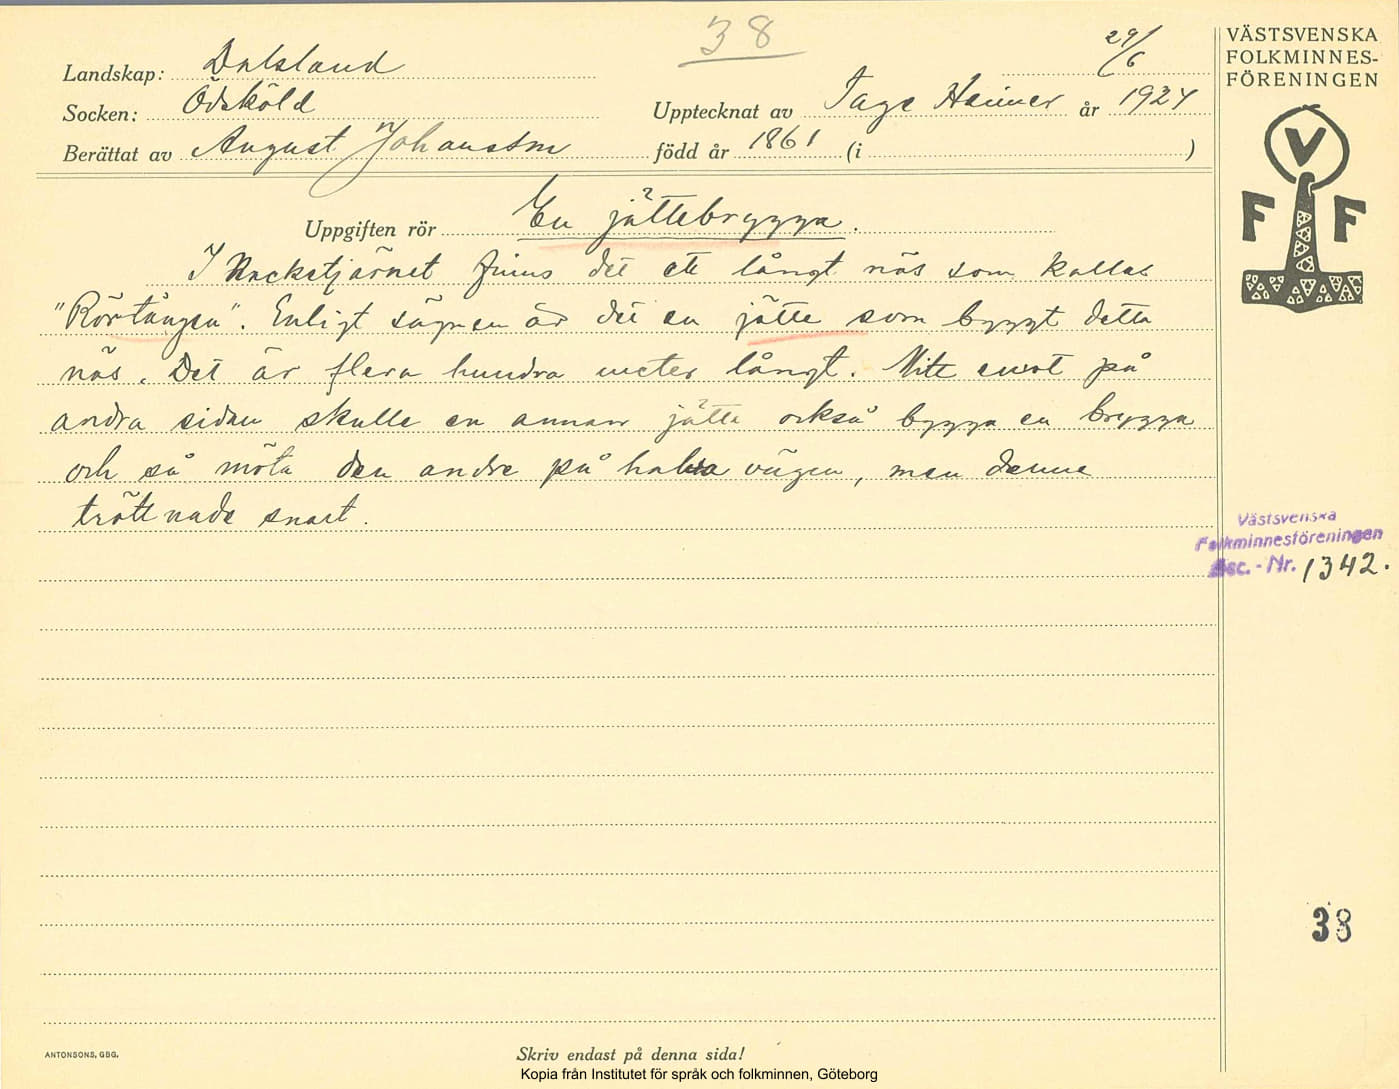 38
29/6
VÄSTSVENSKA
FOLKMINNES-
FÖRENINGEN
Landskap: Dalsland
Socken: Ödsköld
Upptecknat av Tage Heimer år 1924
Berättat av August Johansson född år 1861 (i )
V
F F
Uppgiften rör En jättebrygga.
I Kncketjärnet finns det ett långt näs som kallas
"Rörtången". Enligt sägnen är det en jätte som byggt detta
näs. Det är flera hundra meter långt. Mitt emot på
andra sidan skulle en annan jätte också bygga en brygga
och så möta den andre på halva vägen, men denne
tröttnade snart.
Västsvenska
Folkminnesföreningen
Acc.-Nr. 1342.
38
ANTONSONS, GBG.
Skriv endast på denna sida!
Kopia från Institutet för språk och folkminnen, Göteborg